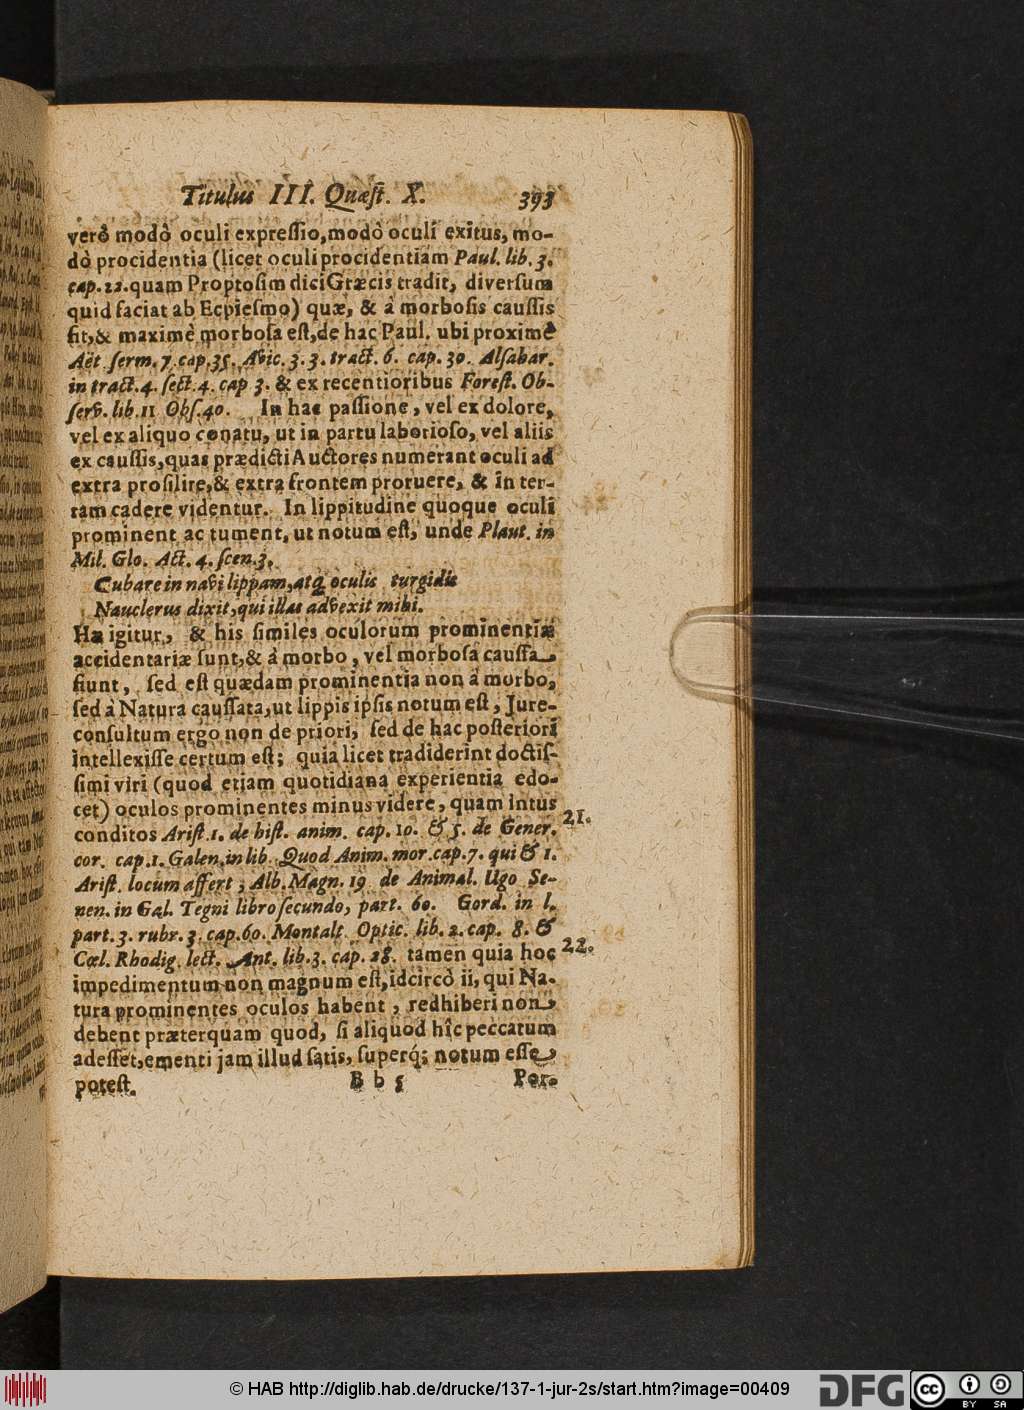 Titulus III. Quæst. X. 393
verò modò oculi expreſſio, modò oculi exitus, mo-
dò procidentia (licet oculi procidentiam Paul. lib. 3.
cap. 22. quam Proptoſim dici Græcis tradit, diverſum
quid faciat ab Ecpieſmo) quæ, & à morboſis cauſſis
fit, & maximè morboſa eſt, de hac Paul. ubi proximè
Aët ſerm. 7. cap. 35. Avic. 3. 3. tract. 6. cap. 30. Alſahar.
in tract. 4. ſect. 4. cap 3. & ex recentioribus Foreſt. Ob-
ſerv. lib. 11 Obſ. 40. In hac paſſione, vel ex dolore,
vel ex aliquo conatu, ut in partu laborioſo, vel aliis
ex cauſſis, quas prædicti Auctores numerant oculi ad
extra proſilire, & extra frontem proruere, & in ter-
ram cadere videntur. In lippitudine quoque oculi
prominent ac tument, ut notum eſt, unde Plaut. in
Mil. Glo. Act. 4. ſcen. 3.
Cubare in navi lippam, atq; oculis turgidis
Nauclerus dixit, qui illas advexit mihi.
Hæ igitur, & his ſimiles oculorum prominentiæ
accidentariæ ſunt, & à morbo, vel morboſa cauſſa
fiunt, ſed eſt quædam prominentia non à morbo,
ſed à Natura cauſſata, ut lippis ipſis notum eſt, Jure-
conſultum ergo non de priori, ſed de hac poſteriori
intellexiſſe certum eſt; quia licet tradiderint doctiſ-
ſimi viri (quod etiam quotidiana experientia edo-
cet) oculos prominentes minus videre, quam intus
conditos Ariſt. 1. de hiſt. anim. cap. 10. & 5. de Gener. 21.
cor. cap. 1. Galen. in lib. Quod Anim. mor. cap. 7. qui & 1.
Ariſt. locum affert; Alb. Magn. 19 de Animal. Ugo Se-
nen. in Gal. Tegni libro ſecundo, part. 60. Gord. in l.
part. 3. rubr. 3. cap. 60. Montalt Optic. lib. 2. cap. 8. &
Cœl. Rhodig. lect. Ant. lib. 3. cap. 28. tamen quia hoc 22.
impedimentum non magnum eſt, idcircò ii, qui Na-
tura prominentes oculos habent, redhiberi non
debent præterquam quod, ſi aliquod hîc peccatum
adeſſet, ementi jam illud ſatis, ſuperq́; notum eſſe
poteſt. B b 5 Por-
© HAB http://diglib.hab.de/drucke/137-1-jur-2s/start.htm?image=00409
DFG
cc BY SA